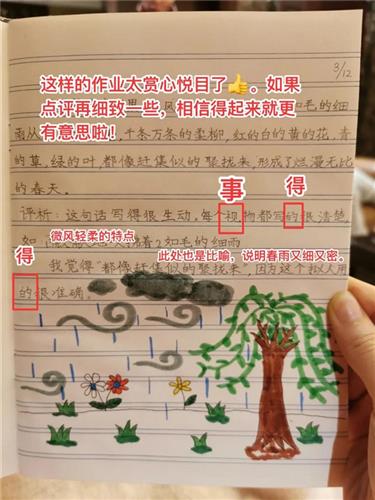 3/12
这样的作业太赏心悦目了👍。如果
点评再细致一些，相信得起来就更
有意思啦！
里 风 如毛的细
雨从 千条万条的柔柳，红的白的黄的花，青
的草，绿的叶，都像赶集似的聚拢来，形成了烂漫无比
的春天。
事 得
评析：这句话写得很生动，每个 物都写的很清楚，
微风轻柔的特点
如 着）如毛的细雨
此处也是比喻，说明春雨又细又密。
得
我觉得“都像赶集似的聚拢来”，因为这个拟人用
的很准确。